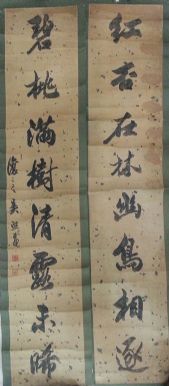 红杏在林幽鳥相逐
碧桃满樹清露未晞